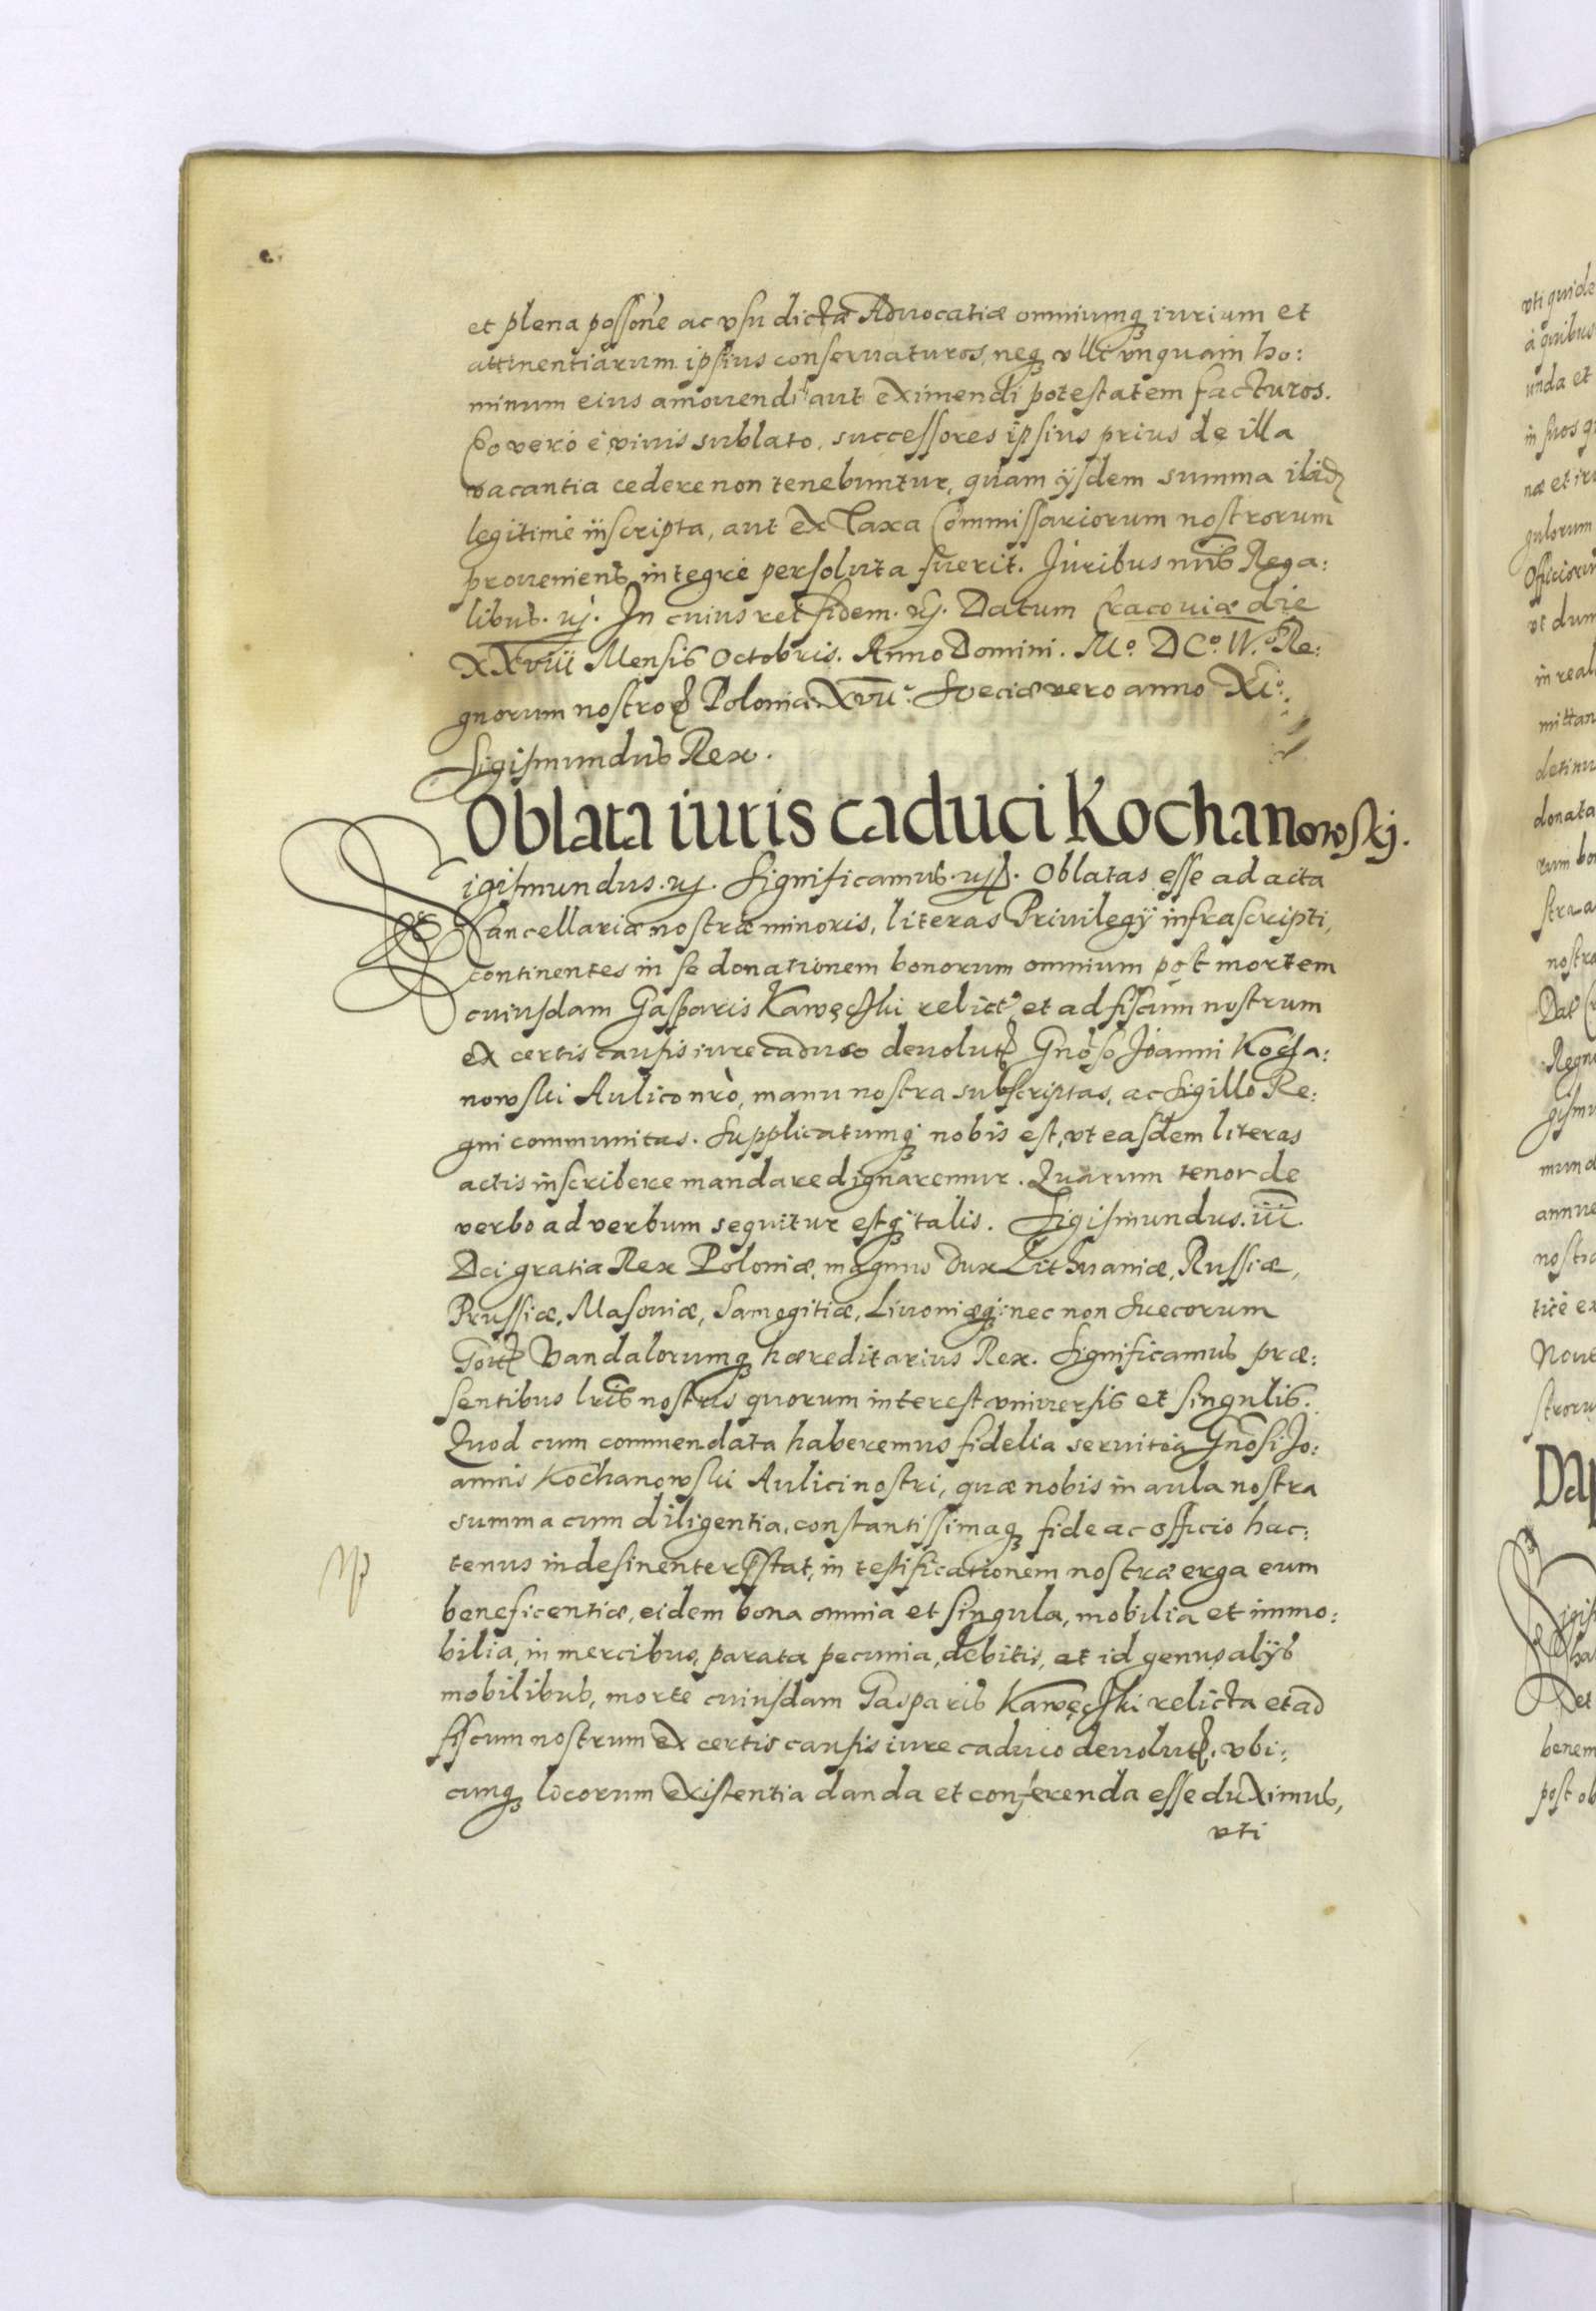 et plena possone ac vsu dictæ Aduocatiæ omniumq; iurium et
attinentiarum ipsius conseruaturos, neq; vlli vnquam ho:
minum eius amouendi aut eximendi potestatem facturos.
Eo vero è viuis sublato, successores ipsius prius de illa
vacantia cedere non tenebuntur, quam ijsdem summa
legitime inscripta, aut ex Taxa Commissariorum nostrorum
proueniens, integre persoluta fuerit. Juribus nris Rega:
libus. In cuius rei fidem. Datum Cracouiæ die
XXviii Mensis Octobris. Anno Domini. Mº. DCº. IVº. Re:
gnorum nostroꝝ Poloniæ XVIIº. Sveciæ vero anno XIº.
Sigismundus Rex.
Oblata iuris caduci Kochanowskj.
Sigismundus. Significamus. Oblatas esse ad acta
Cancellariæ nostræ minoris, literas Priuilegij infrascripti,
continentes in se donationem bonorum omnium post mortem
cuiusdam Gasparis Kawęcski relictꝝ et ad fiscum nostrum
ex certis causis iure caduco deuolutꝝ Gnoso Joanni Kocha:
nowski Aulico nrò, manu nostra subscriptas, ac sigillo Re:
gni communitas. Supplicatumq; nobis est, vt easdem literas
actis inscribere mandare dignaremur. Quarum tenor de
verbo ad verbum sequitur estq; talis. Sigismundus. iii.
Dei gratia Rex Poloniæ, magnus Dux Lithuaniæ, Russiæ,
Prussiæ, Masouiæ, Samogitiæ, Liuoniæq; nec non Suecorum
Gottꝝ Vandalorumq; hæreditarius Rex. Significamus præ:
sentibus lris nostris quorum interest vniuersis et singulis.
Quod cum commendata haberemus fidelia seruitia Gnosi Jo:
annis Kochanowski Aulici nostri, quæ nobis in aula nostra
summa cum diligentia, constantissimaq; fide ac officio hac:
tenus indesinenter p̃stat, in testificationem nostræ erga eum
beneficentiæ, eidem bona omnia et singula, mobilia et immo:
bilia, in mercibus, parata pecunia, debitis, et id genus alijs
mobilibus, morte cuiusdam Gasparis Kawęcski relicta et ad
fiscum nostrum ex certis causis iure caduco deuolutꝝ, vbi:
cunq; locorum existentia danda et conferenda esse duximus,
vti